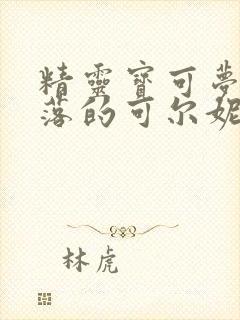 精靈寶可夢
落的可尔妮
林虎